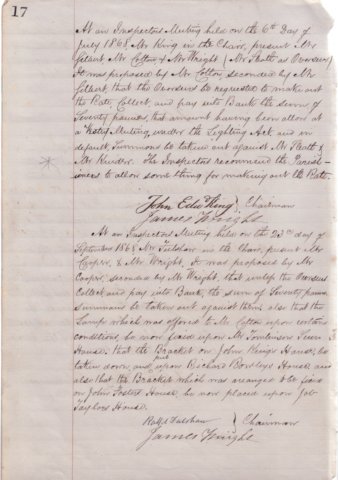 17
At an Inspectors Meeting held on the 6th Day of
July 1868, Mr King in the Chair, present Mr
Gilbert Mr Cotton & Mr Wright (Mr Heath as Overseer)
It was proposed by Mr Cotton, seconded by Mr
Gilbert, that the Overseers be requested to make out
the Rate, Collect and pay into Bank the sum of
Seventy pounds, that amount having been allow at
a Vestry Meeting, under the Lighting Act and in
default, Summons be taken out against Mr Heath &
Mr The Inspectors recommend the Parish-
ioners to allow some thing for making out the Rate.
John Edwd King } Chairman
James Wright
At an Inspectors Meeting held on the 23rd day of
September 1868 Mr Fulshaw in the Chair, present Mr
Cooper, & Mr Wright, It was proposed by Mr
Cooper, seconded by Mr Wright, that unless the Overseers
Collect and pay into Bank, the sum of Seventy pounds
summons be taken out against them, also that the
Lamp which was offered to Mr Cotton upon certain
conditions, be now placed upon Mr Tomlinsons
House. that the Bracket on John Kings House, be
taken down and put upon Richard Bowleys House and
also that the Bracket which was arranged to be fixed
on John Fosters House, be now placed upon Job
Taylors House.
Ralph Fulshaw } Chairman
James Wright